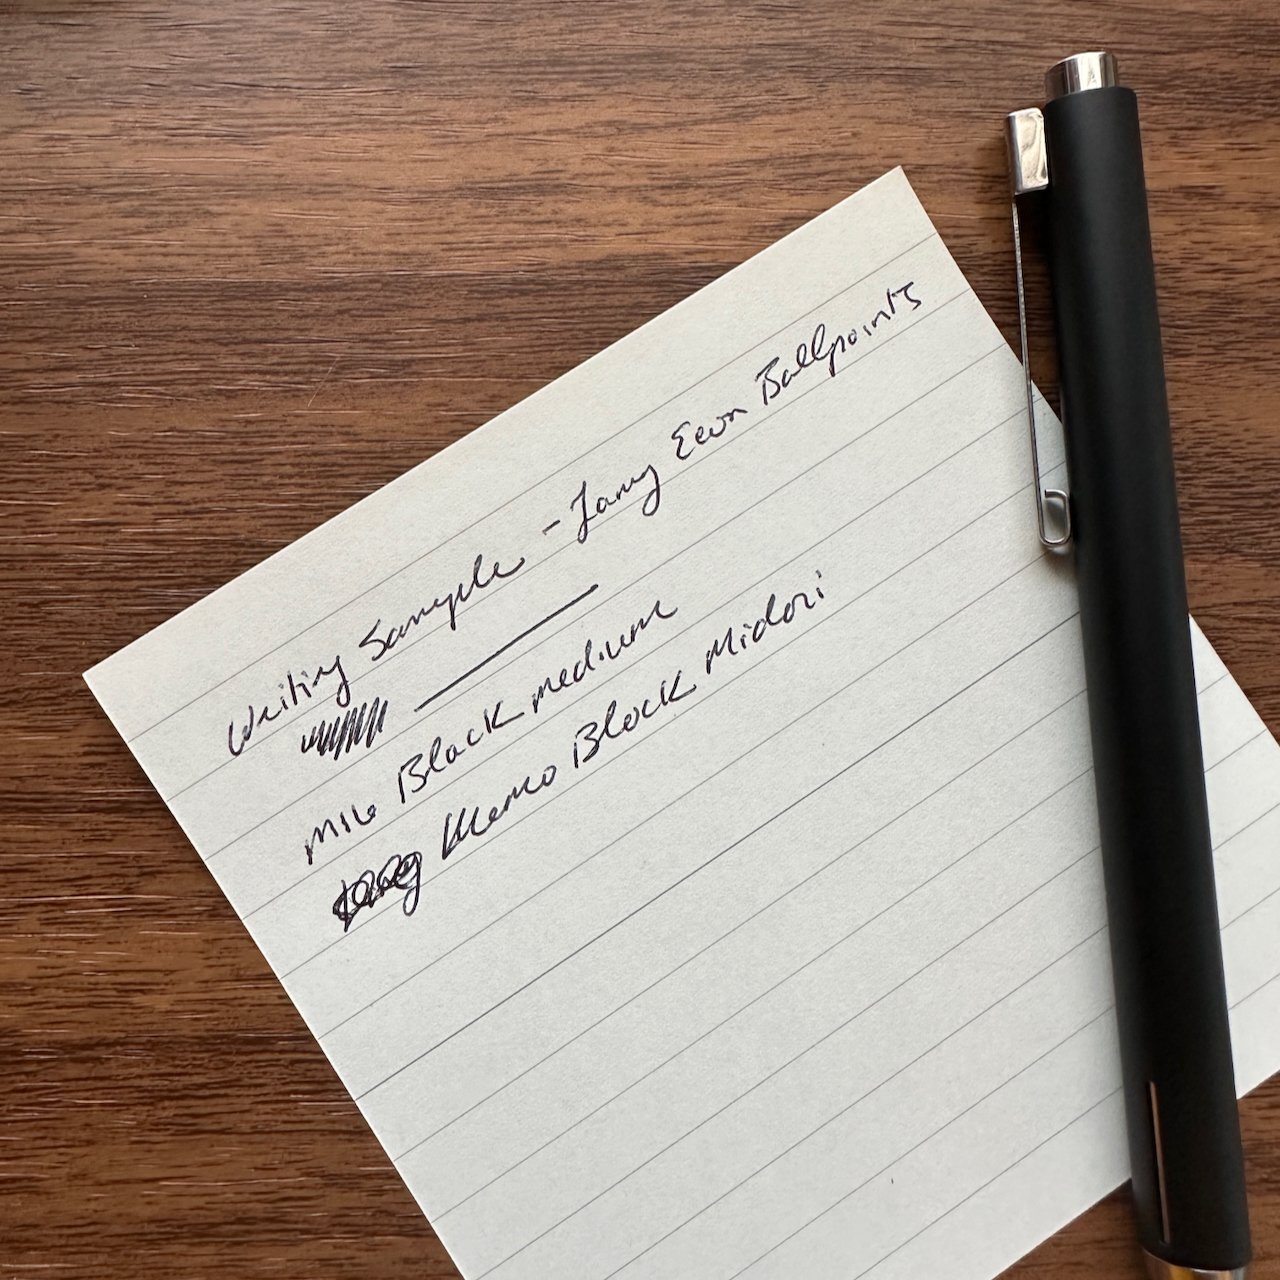 Writing Sample - Lamy Econ Ballpoints
M16 Black medium
Memo Block Midori